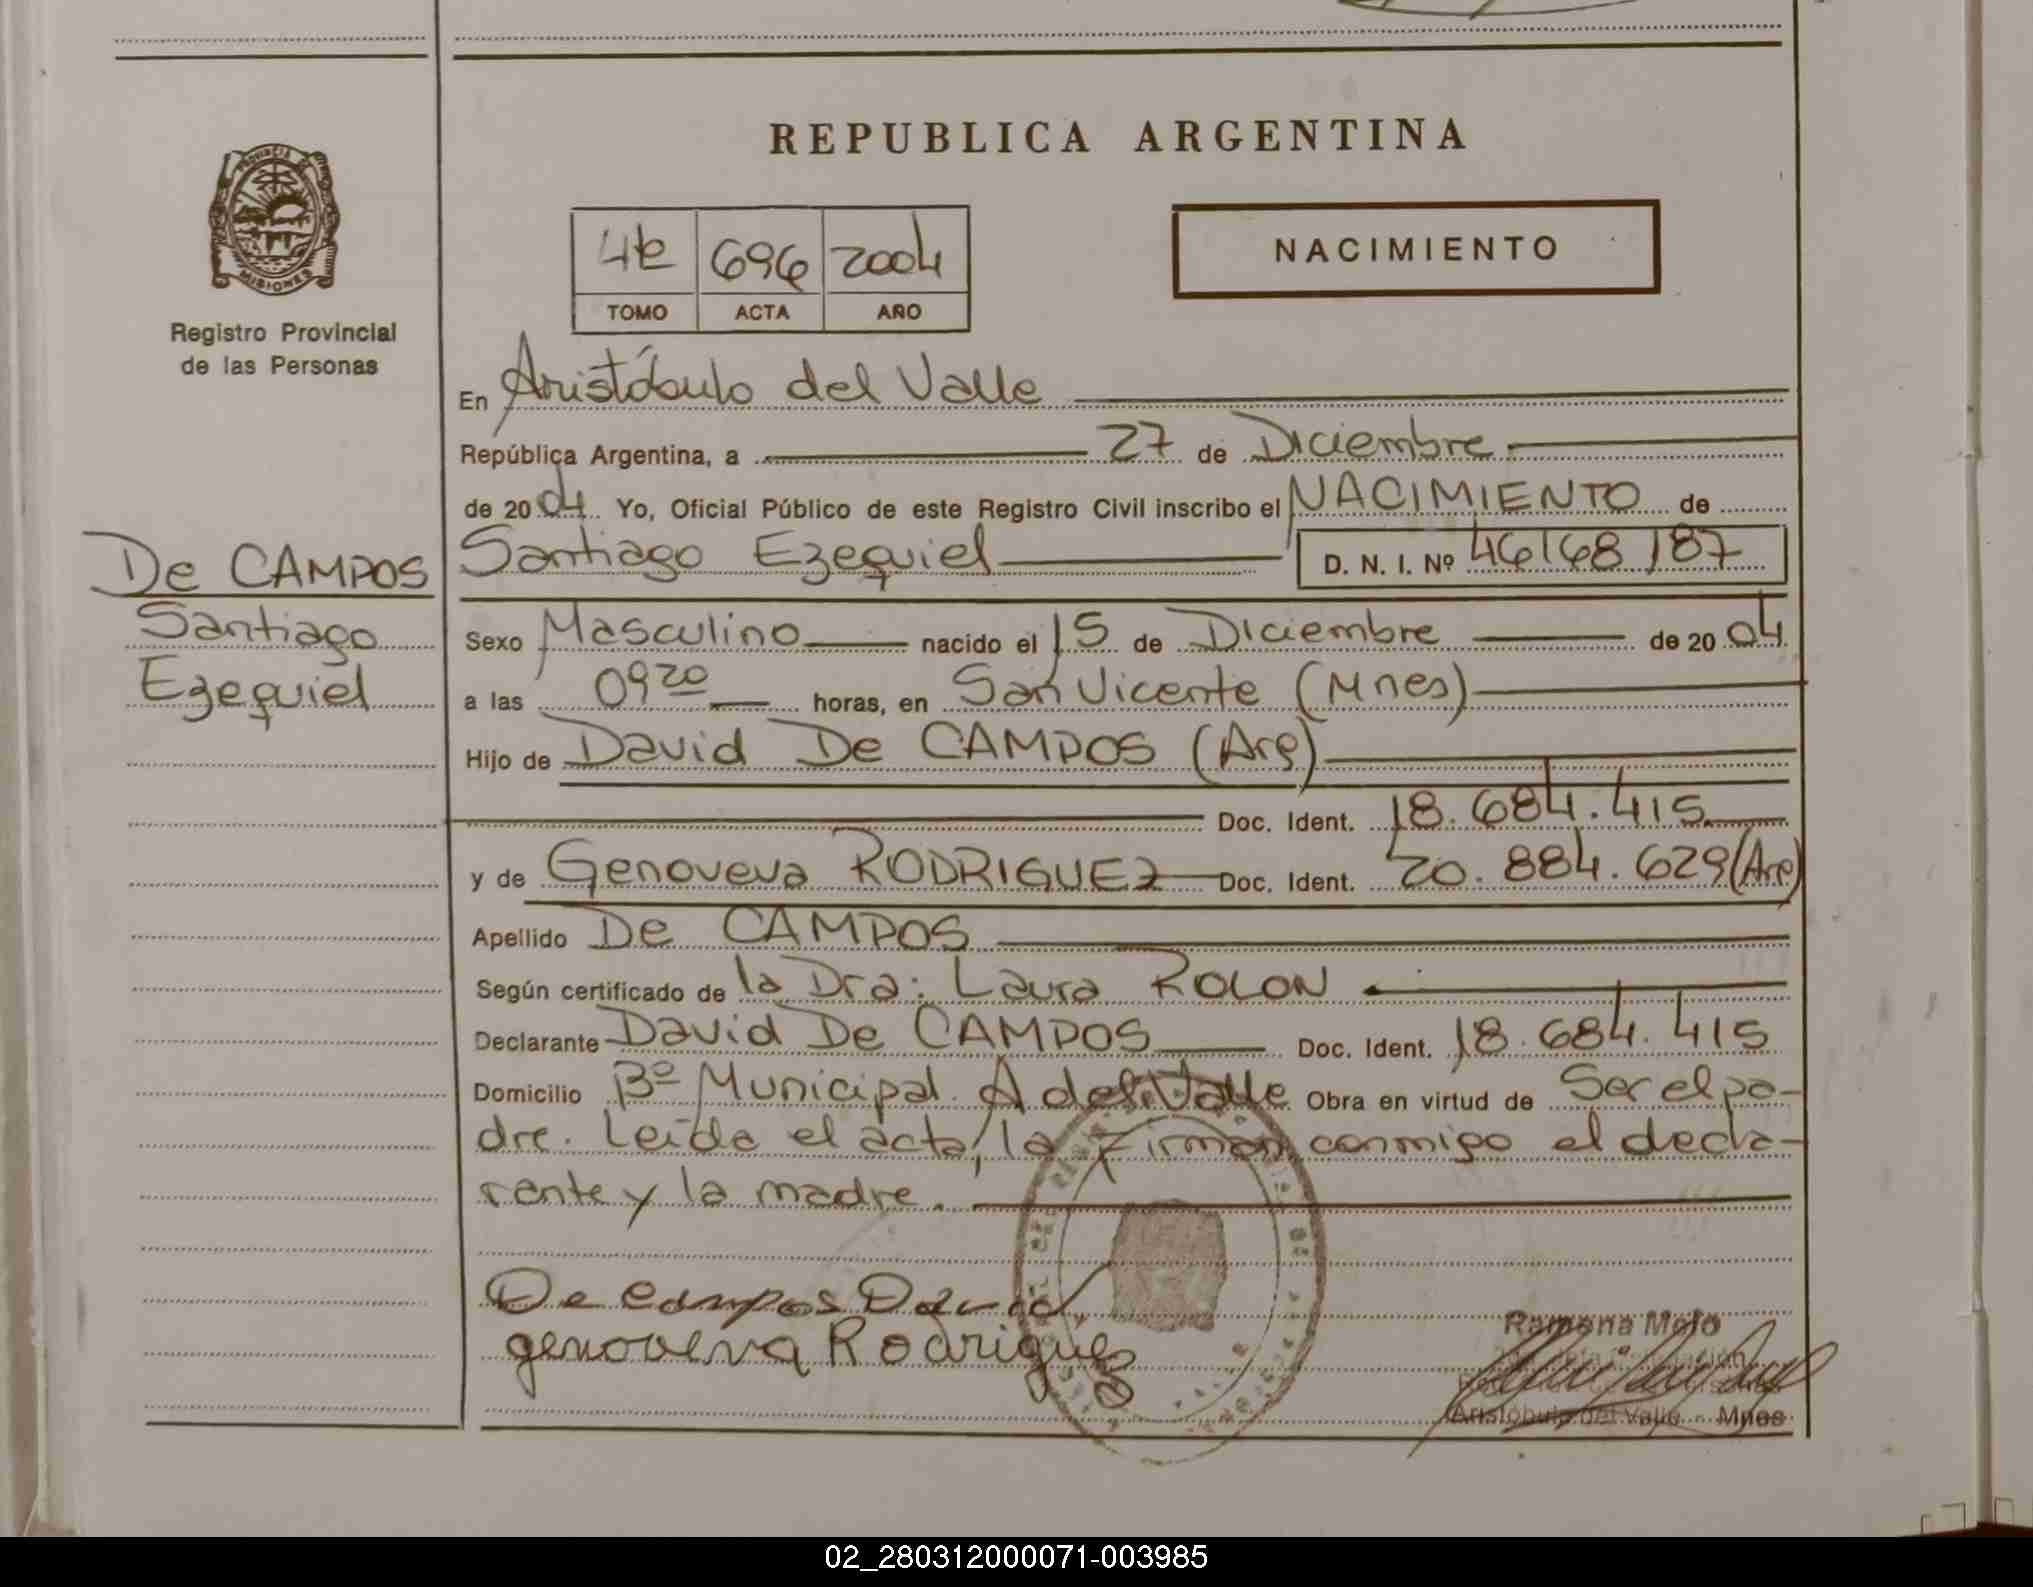 REPUBLICA ARGENTINA
PROVINCIA
MISIONES
Registro Provincial
de las Personas
NACIMIENTO
696 2004
TOMO ACTA AÑO
En Aristóbulo del Valle
República Argentina, a 27 de Diciembre
de 2004 Yo, Oficial Público de este Registro Civil inscribo el NACIMIENTO de
Santiago Ezequiel D. N. I. Nº 46168187
De CAMPOS
Santiago
Ezequiel
Sexo Masculino nacido el 15 de Diciembre de 2004
a las 09 20 horas, en San Vicente (Mnes)
Hijo de David De CAMPOS (Arg)
Doc. Ident. 18.684.415
y de Genoveva RODRIGUEZ Doc. Ident. 20.884.629 (Arg)
Apellido De CAMPOS
Según certificado de la Dra: Laura ROLON
Declarante David De CAMPOS Doc. Ident. 18.684.415
Domicilio Bº Municipal. A del Valle Obra en virtud de Ser el pa-
dre. Leída el acta, la firman conmigo el decla-
rante y la madre.
De Campos David
genoveva Rodriguez
Ramona Melo
Aristóbulo del Valle - Mnes
02_280312000071-003985